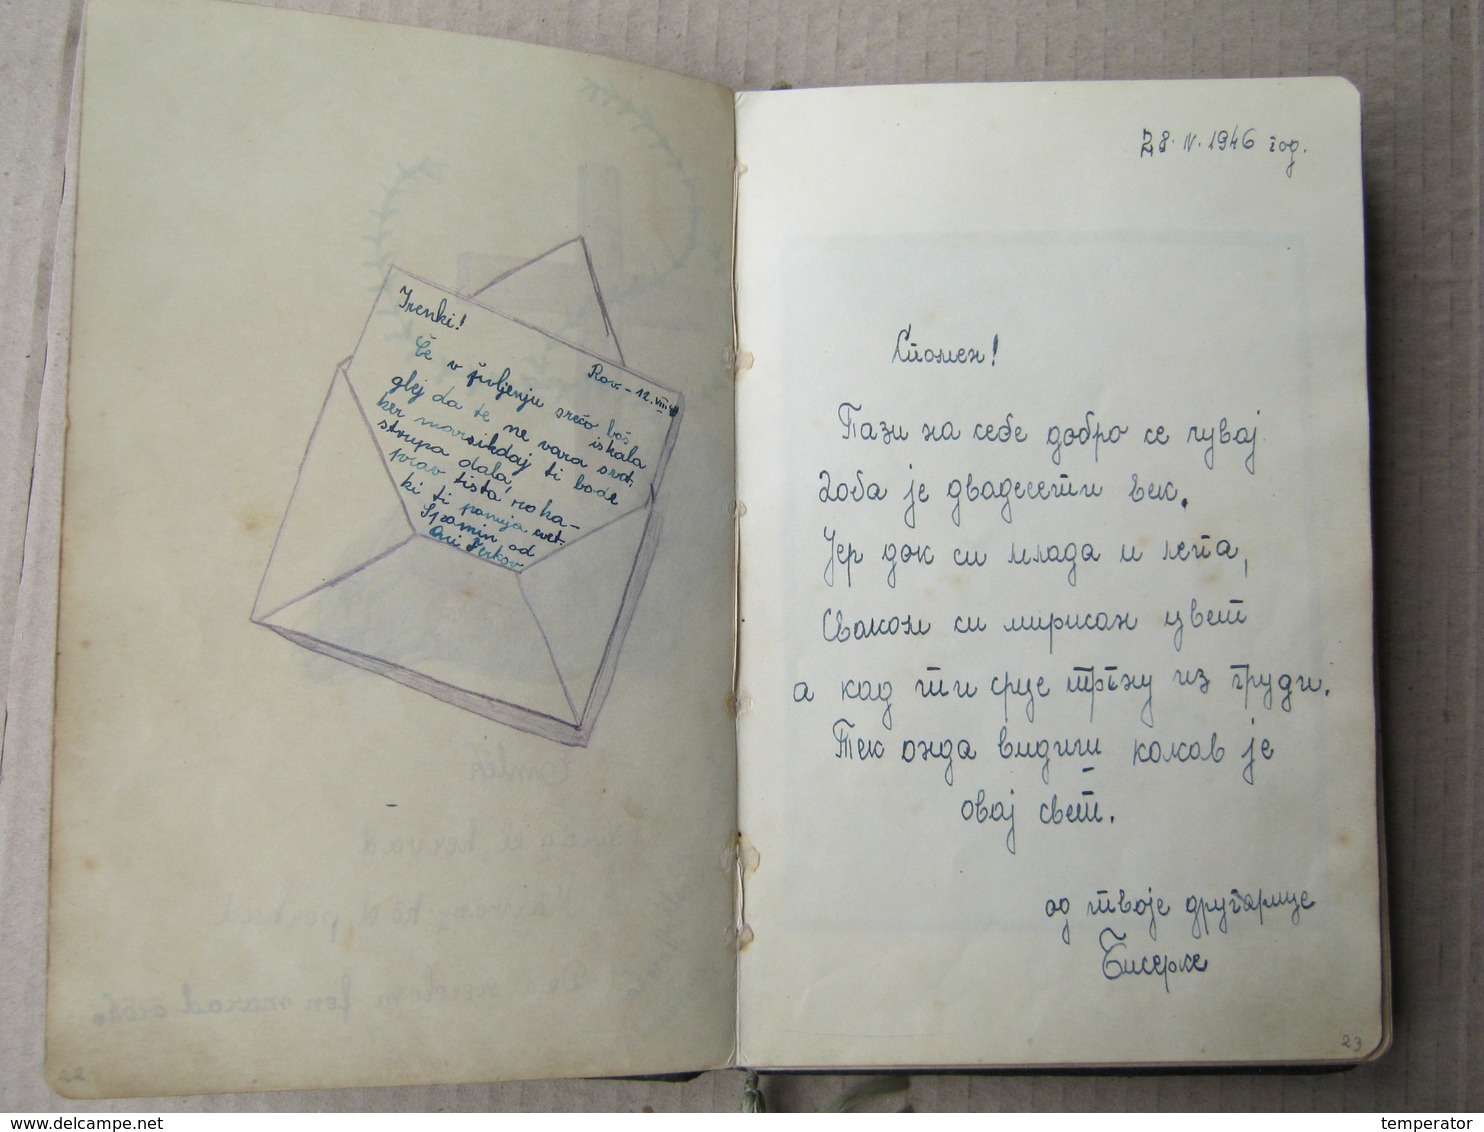 Irenki!
Rov. - 12. VIII
Če v življenju srečo boš iskala
glej da te ne vara svet.
ker marsikdaj ti bode
strupa dala,
prav tista roka-
ki ti ponuja cvet.
Spomin od
28. IV. 1946 год.
Спомен!
Пази на себе добро се чувај
Доба је двадесети век.
Јер док си млада и лепа,
Сваком си мирисан цвет
а кад ти срце тргну из груди.
Тек онда видиш каков је
овај свет.
од твоје другарице
Бисерке
22
23
Delcampe.net
temperator